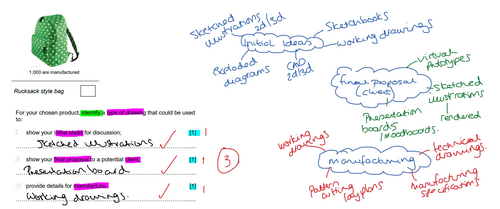 1,000 are manufactured
Rucksack style bag
For your chosen product, identify a type of drawing that could be used
to:
show your initial ideas for discussion; [1] 1
Sketched illustrations
show your final proposal to a potential client; [1] 1
Presentation board
3
provide details for manufacture. [1] 1
Working drawings.
Sketched
illustrations
2d/3d
Sketchbooks
initial ideas
working drawings
Exploded
diagrams
CAD
2d/3d
virtual
prototypes
final proposal
(client)
Sketched
illustrations
rendered
Presentation
boards
/moodboards.
working
drawings
manufacturing
technical
drawings.
pattern
cutting lay plans
manufacturing
specifications